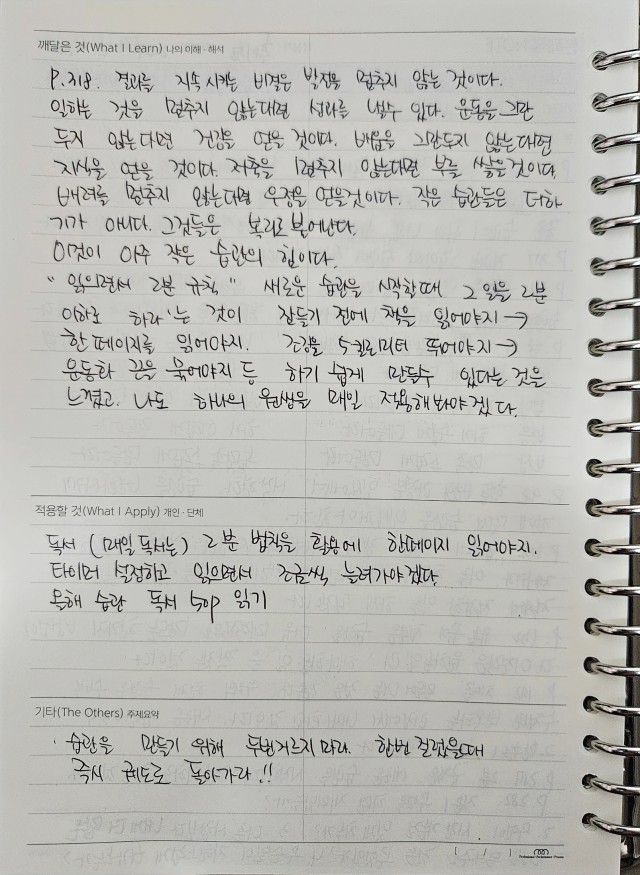 깨달은 것(What I Learn) 나의 이해·해석
P.318. 결과를 지속시키는 비결은 발전을 멈추지 않는 것이다.
일하는 것을 멈추지 않는다면 성과를 낼수 있다. 운동을 그만
두지 않는다면 건강을 얻을 것이다. 배움을 그만두지 않는다면
지식을 얻을 것이다. 저축을 멈추지 않는다면 부를 쌓을것이다
배려를 멈추지 않는다면 우정을 얻을것이다. 작은 습관들은 더하
기가 아니다. 그것들은 복리로 불어난다.
이것이 아주 작은 습관의 힘이다.
" 읽으면서 2분 규칙 " 새로운 습관을 시작할때 그 일을 2분
이하로 하라'는 것이 잠들기 전에 책을 읽어야지→
한 페이지를 읽어야지. 조깅을 5킬로미터 뛰어야지→
운동화 끈을 묶어야지 등 하기 쉽게 만들수 있다는 것을
느꼈고. 나도 하나의 매일 적용해봐야겠다.
적용할 것(What I Apply) 개인·단체
독서 (매일 독서는) 2분 법칙을 활용에 한페이지 읽어야지.
타이머 설정하고 읽으면서 조금씩 늘려가야겠다.
올해 습관 독서 50p 읽기
기타(The Others) 주제요약
· 습관을 만들기 위해 두번거르지마라. 한번 걸렀을때
즉시 궤도로 돌아가라.!!